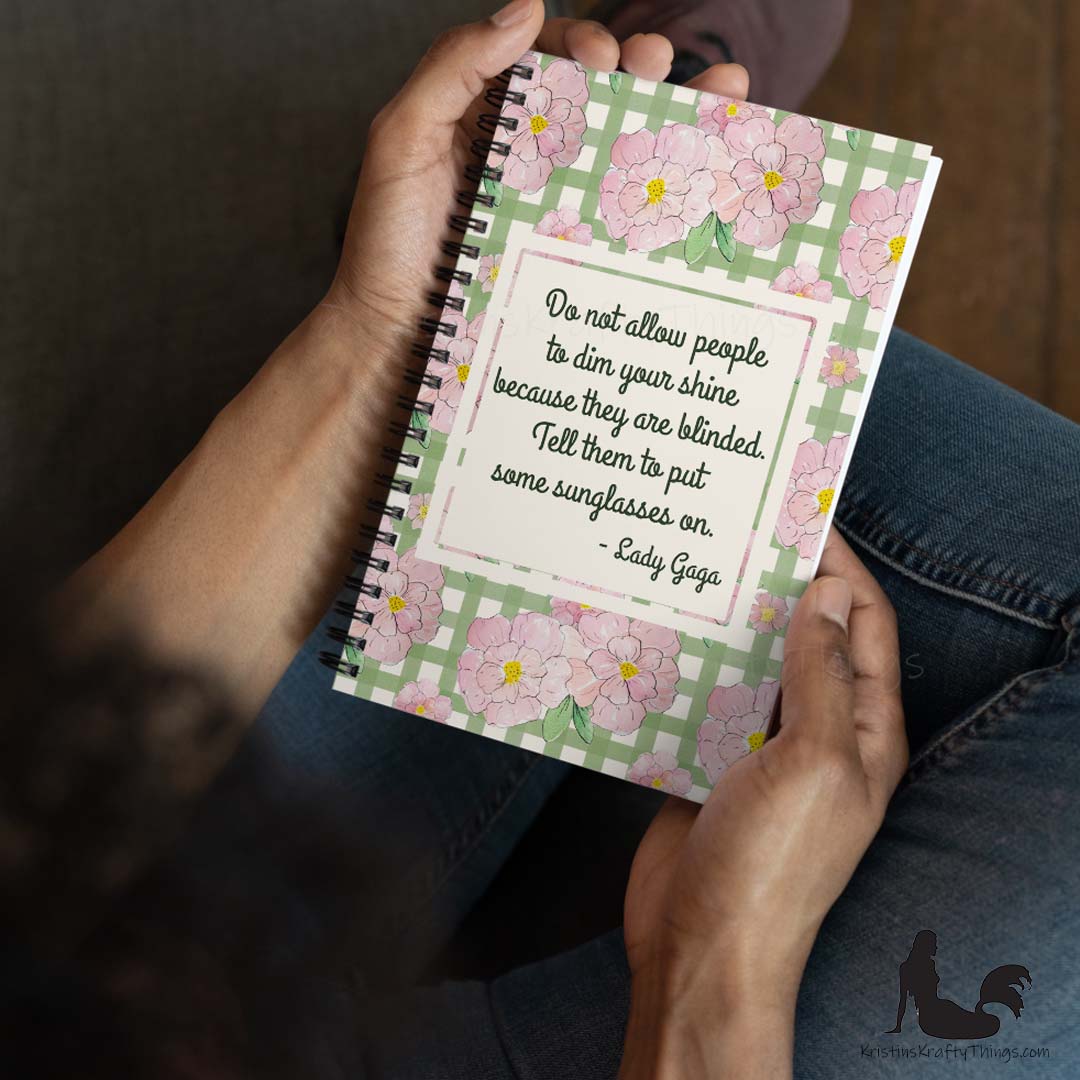 Do not allow people
to dim your shine
because they are blinded.
Tell them to put
some sunglasses on.
- Lady Gaga
KristinsKraftyThings.com